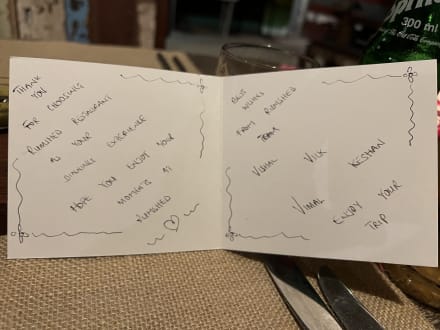 THANK
YOU
FOR CHOOSING
RUMLIHED RESTAURANT
AS YOUR
DINNING EXPERIENCE
HOPE YOU ENJOY YOUR
MOMENTS AT
RUMLIHED
BEST
WISHES
FROM RUMLIHED
TEAM
VIMAL VICK KESHAN
VIMAL
ENJOY YOUR
TRIP
300 ml